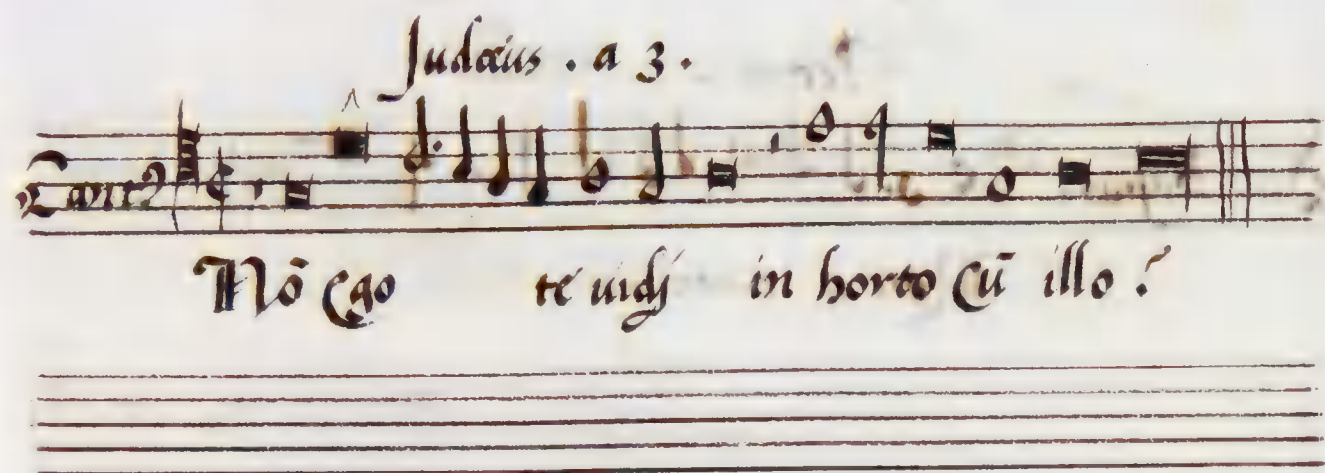 Judæus . a 3 .
Cant9
Nō Ego te uidj in horto cū illo ?